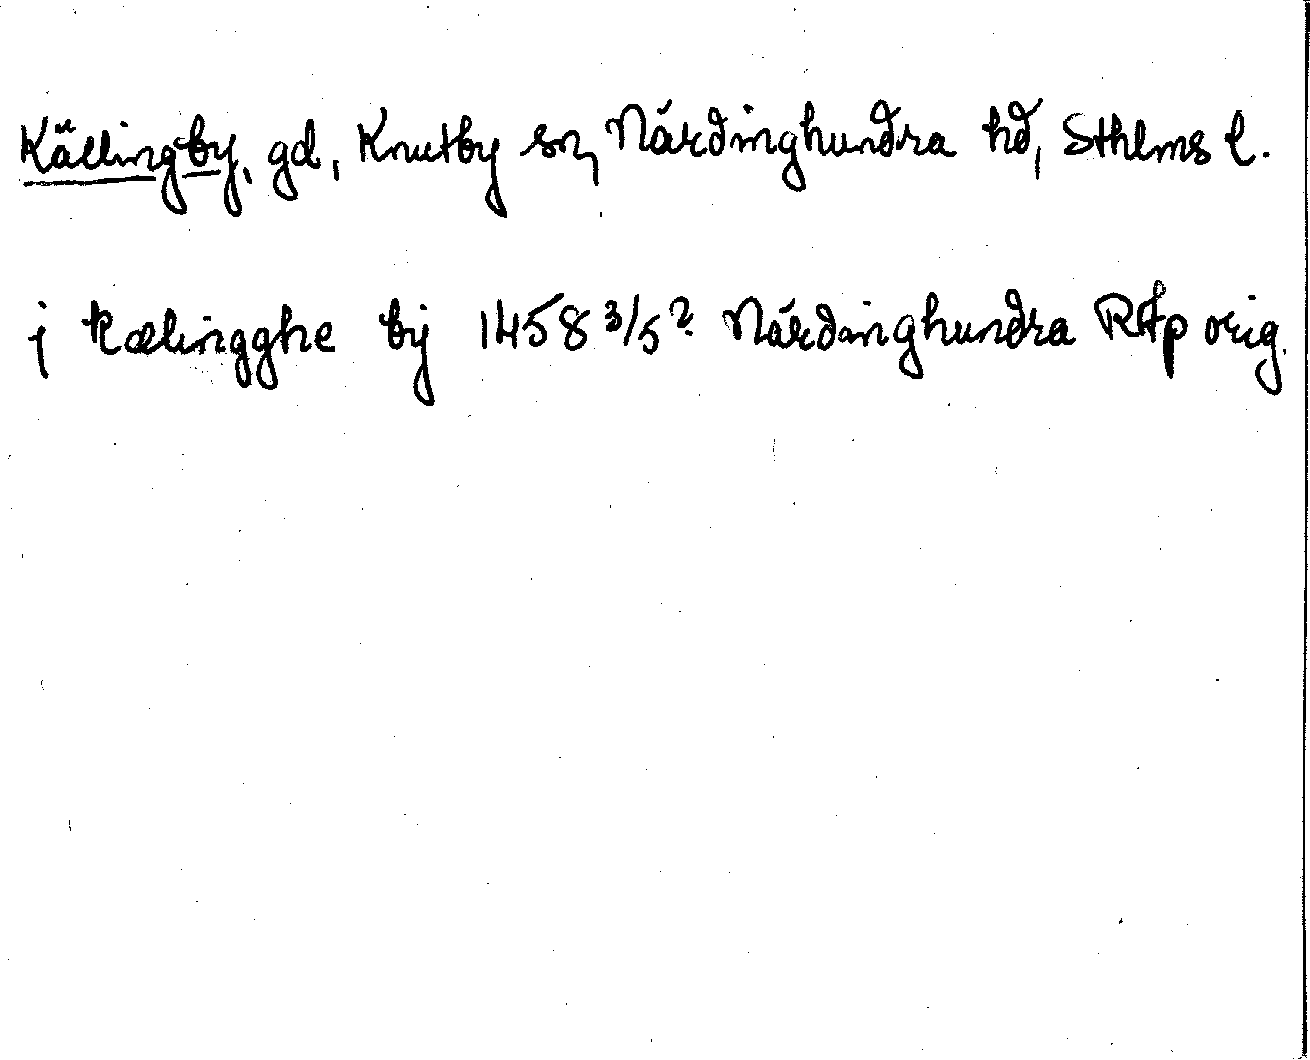 Källingby, gd, Knutby sn, Närdinghundra hd, Sthlms l.
j kælingghe by 1458 3/5? Närdinghundra RAp orig.